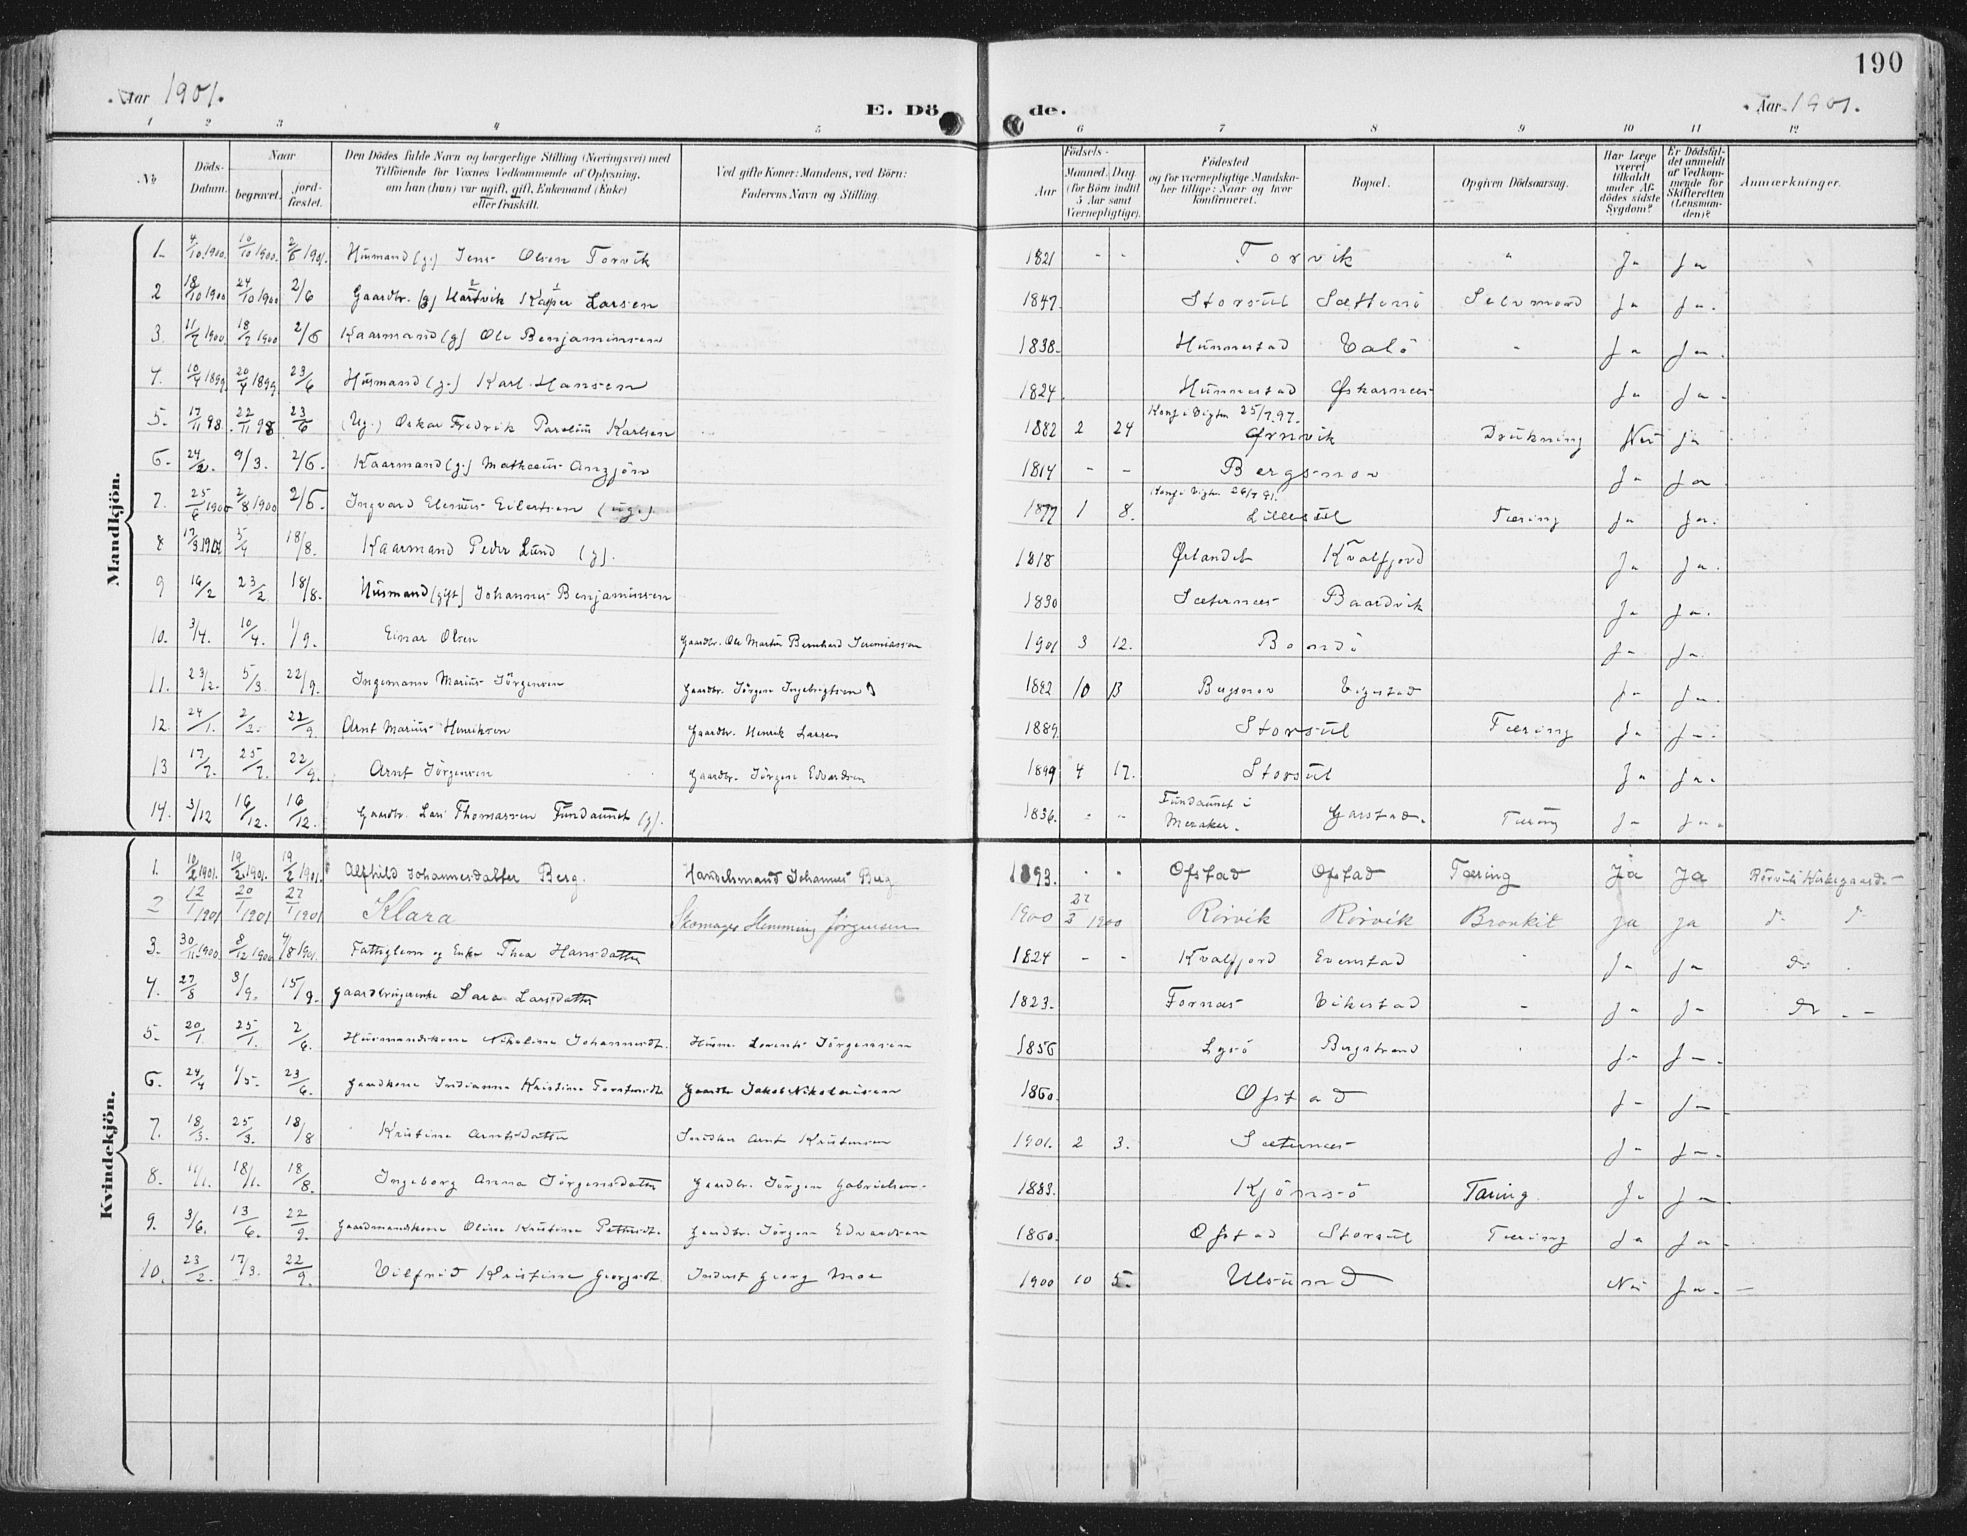 190
Aar 1901.
E. Döde.
Aar 1901.
1 2 3 4 5 6 7 8 9 10 11 12
No
Döds-Datum.
Naar
begravet.
jord-fæstet.
Den Dödes fulde Navn og borgerlige Stilling (Næringsvei) med Tilföiende for Voxnes Vedkommende af Oplysning, om han (hun) var ugift, gift, Enkemand (Enke) eller fraskilt.
Ved gifte Koner: Mandens, ved Börn: Faderens Navn og Stilling.
Födsels-
Aar
Maaned. Dag
(for Börn indtil 5 Aar samt Værnepligtige).
Födested og for værnepligtige Mandskaber tillige: Naar og hvor konfirmeret.
Bopæl.
Opgiven Dödsaarsag.
Har Læge været tilkaldt under Afdödes sidste Sygdom?
Er Dödsfaldet anmeldt af Vedkommende for Skifteretten (Lensmanden)?
Anmærkninger.
Mandkjön.
1. 4/10 1900. 10/10 1900. 2/6 1901. Husmand (g.) Jens Olsen Torvik 1821 - - Torvik " Ja Ja
2 18/10 1900 24/10 1900 2/6 Gaardbr. (g) Hartvik Kasper Larsen 1847. Storsul Sætterö Selvmord Ja Ja.
3. 11/7 1900 18/7 1900 2/6 Kaarmand (g) Ole Benjaminsen 1838. Hunnestad Valö - Ja Ja.
4. 10/4 1899 20/4 1899 23/6 Husmand (g.) Karl Hansen 1824. Hunnestad Øskarnees Ja Ja.
5. 17/11 98. 22/11 98. 23/6 (Ug.) Oskar Fredrik Parelius Karlsen 1882 2 24 Konf i Vigten 25/7.97. Ørnvik Drukning Nei Ja
6. 24/2. 9/3. 2/6. Kaarmand (g.) Mathæus Anzjön 1814 - - Bergsnov Ja Ja
7. 25/6 1900 2/8 1900 2/6. Ingvard Elenius Eilertsen (ug.) 1877 1 8. Konf i Vigten 26/7 91. Lillesul Tæring Ja Ja.
8 17/3 1901 5/4 18/8. Kaarmand Peder Lund (g). 1818 Ørlandet Kvalfjord Ja Ja.
9 16/2 23/2 18/8. Husmand (gift) Johannes Benjaminsen 1830 Sæternees Baardvik Ja Ja.
10. 3/4. 10/4. 1/9. Einar Olsen Gaardbr. Ole Martin Bernhard Jeremiassen 1901 3 12. Bondö Ja Ja.
11. 23/2. 5/3. 22/9. Ingemann Marius Jörgensen Gaardbr. Jörgen Ingebrigtsen 1882 10 13 Bergsnov Vigestad Ja Ja.
12. 24/1. 2/2. 22/9. Arnt Marius Henriksen Gaardbr. Henrik Larsen 1889. Storsul Tæring Ja Ja.
13 17/7. 25/7. 22/9. Arnt Jörgensen Gaardbr. Jörgen Edvardsen 1899 4 17. Storsul Ja Ja.
14. 3/12 16/12. 16/12. Gaardbr. Lars Thomassen Fundaunet (g). 1836. - - Fundaunet i Meraker. Garstad. Tæring Ja Ja.
Kvindekjön.
1. 10/2 1901. 19/2 1901. 19/2 1901. Alfhild Johannesdatter Berg. Handelsmand Johannes Berg 1893. - - Ofstad Ofstad Tæring Ja Ja Rörviks Kirkegaard
2 12/1 1901 20/1 1901 27/1 1901 Klara Skomager Hemming Jörgensen 1900 27/2 1900 Rörvik Rörvik Bronkit ja ja do do
3. 30/11 1900 8/12 1900 4/8 1901. Fattiglem og Enke Thea Hansdatter 1824 - - Kvalfjord Evenstad - Ja Ja do
4. 27/8 3/9. 15/9. Gaardbrugerenke Sara Larsdatter 1823. Fornæs Vikestad - Ja Ja do
5. 20/1. 25/1. 2/6. Husmandskone Nikoline Johannesdt. Husm. Lorents Jörgensen 1856 Lysö Bergstrand Ja Ja.
6. 24/4 1/5. 23/6. Gaardkone Indianna Kristine Forsteredt Gaardbr Jakob Nikolaisen 1860. Ofstad Ja Ja.
7. 18/3. 25/3. 18/8 Kristine Arntsdatter Inderst Arnt Kristensen 1901. 2 3. Sæternees Ja Ja.
8. 11/1. 18/1. 18/8. Ingeborg Anna Jörgensdatter Gaardbr. Jörgen Gabrielsen. 1883. Kjönsö Tæring Ja Ja
9. 3/6. 13/6. 22/9. Gaardmandskone Oline Kristine Petersdt. Gaardbr. Jörgen Edvardsen 1860. Ofstad Storsul Tæring Ja Ja
10. 23/2. 17/3. 22/9. Vilfrid Kristine Georgsdt. Inderst Georg Moe 1900 10 5. Ulsund Nei Ja.